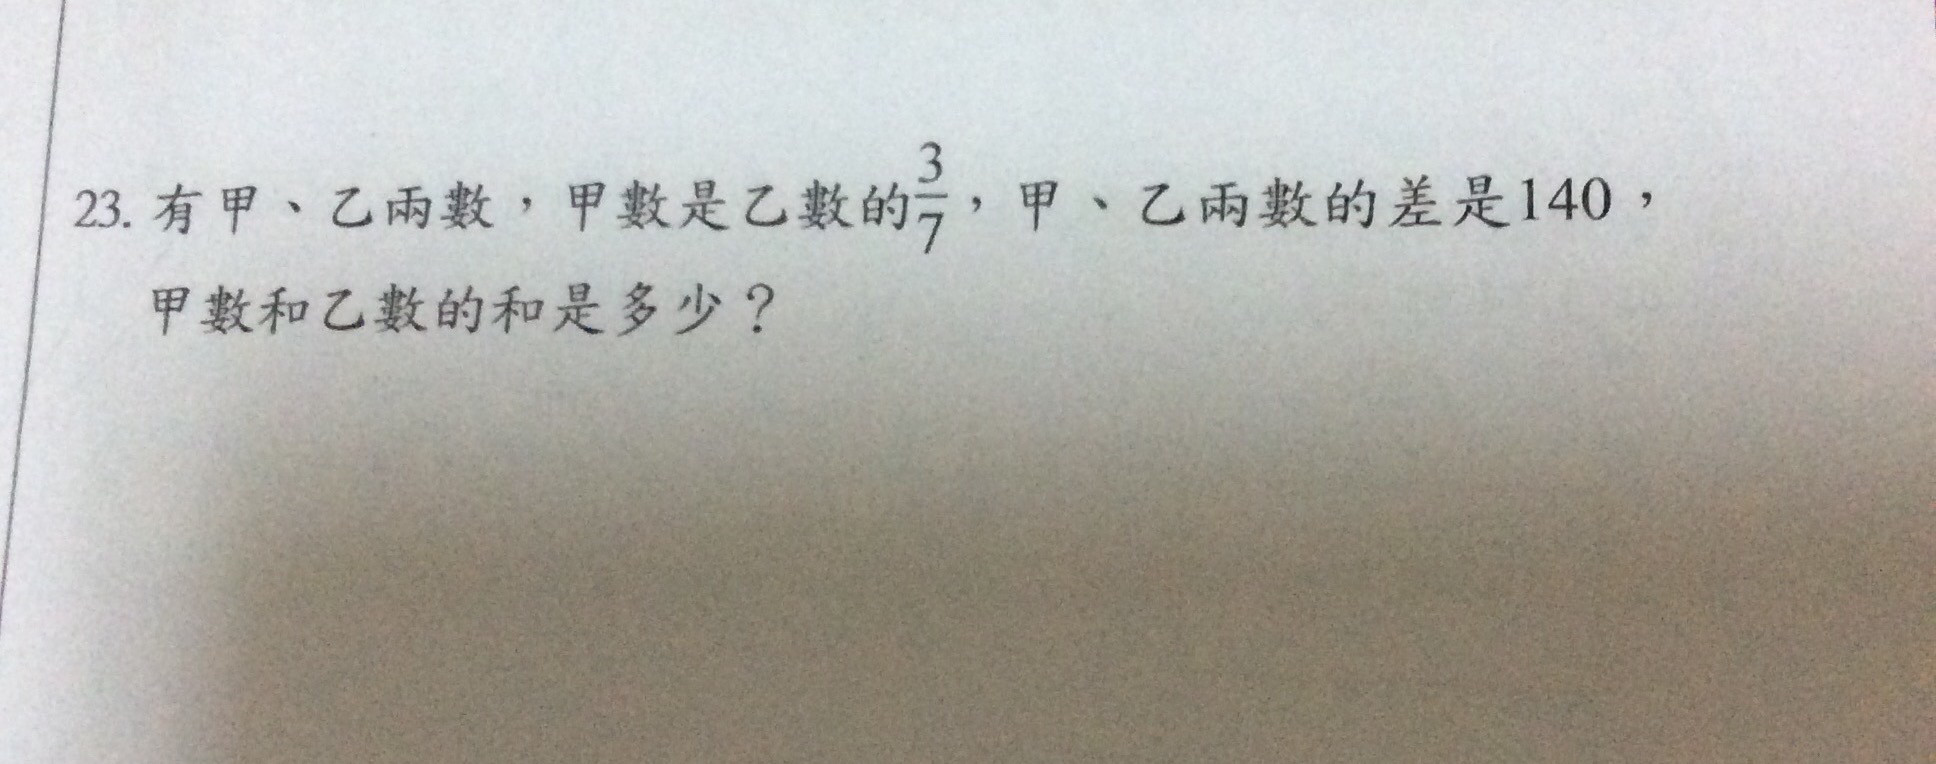 23. 有甲、乙兩數，甲數是乙數的3/7，甲、乙兩數的差是140，
甲數和乙數的和是多少？